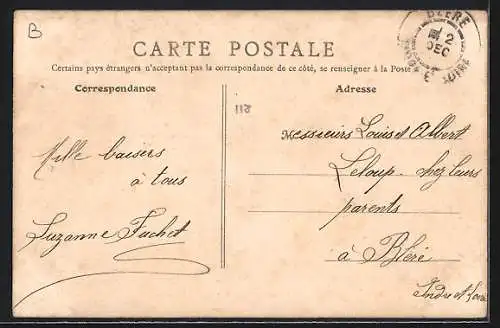 B
BLÉRÉ
2
DEC
CARTE POSTALE
Certains pays étrangers n'acceptant pas la correspondance de ce côté, se renseigner à la Poste
Correspondance
Adresse
118
Mille baisers
à tous
Suzanne Fachet
Messieurs Louis et Albert
Leloup. chez leurs
parents
à Bléré
Indre et Loire